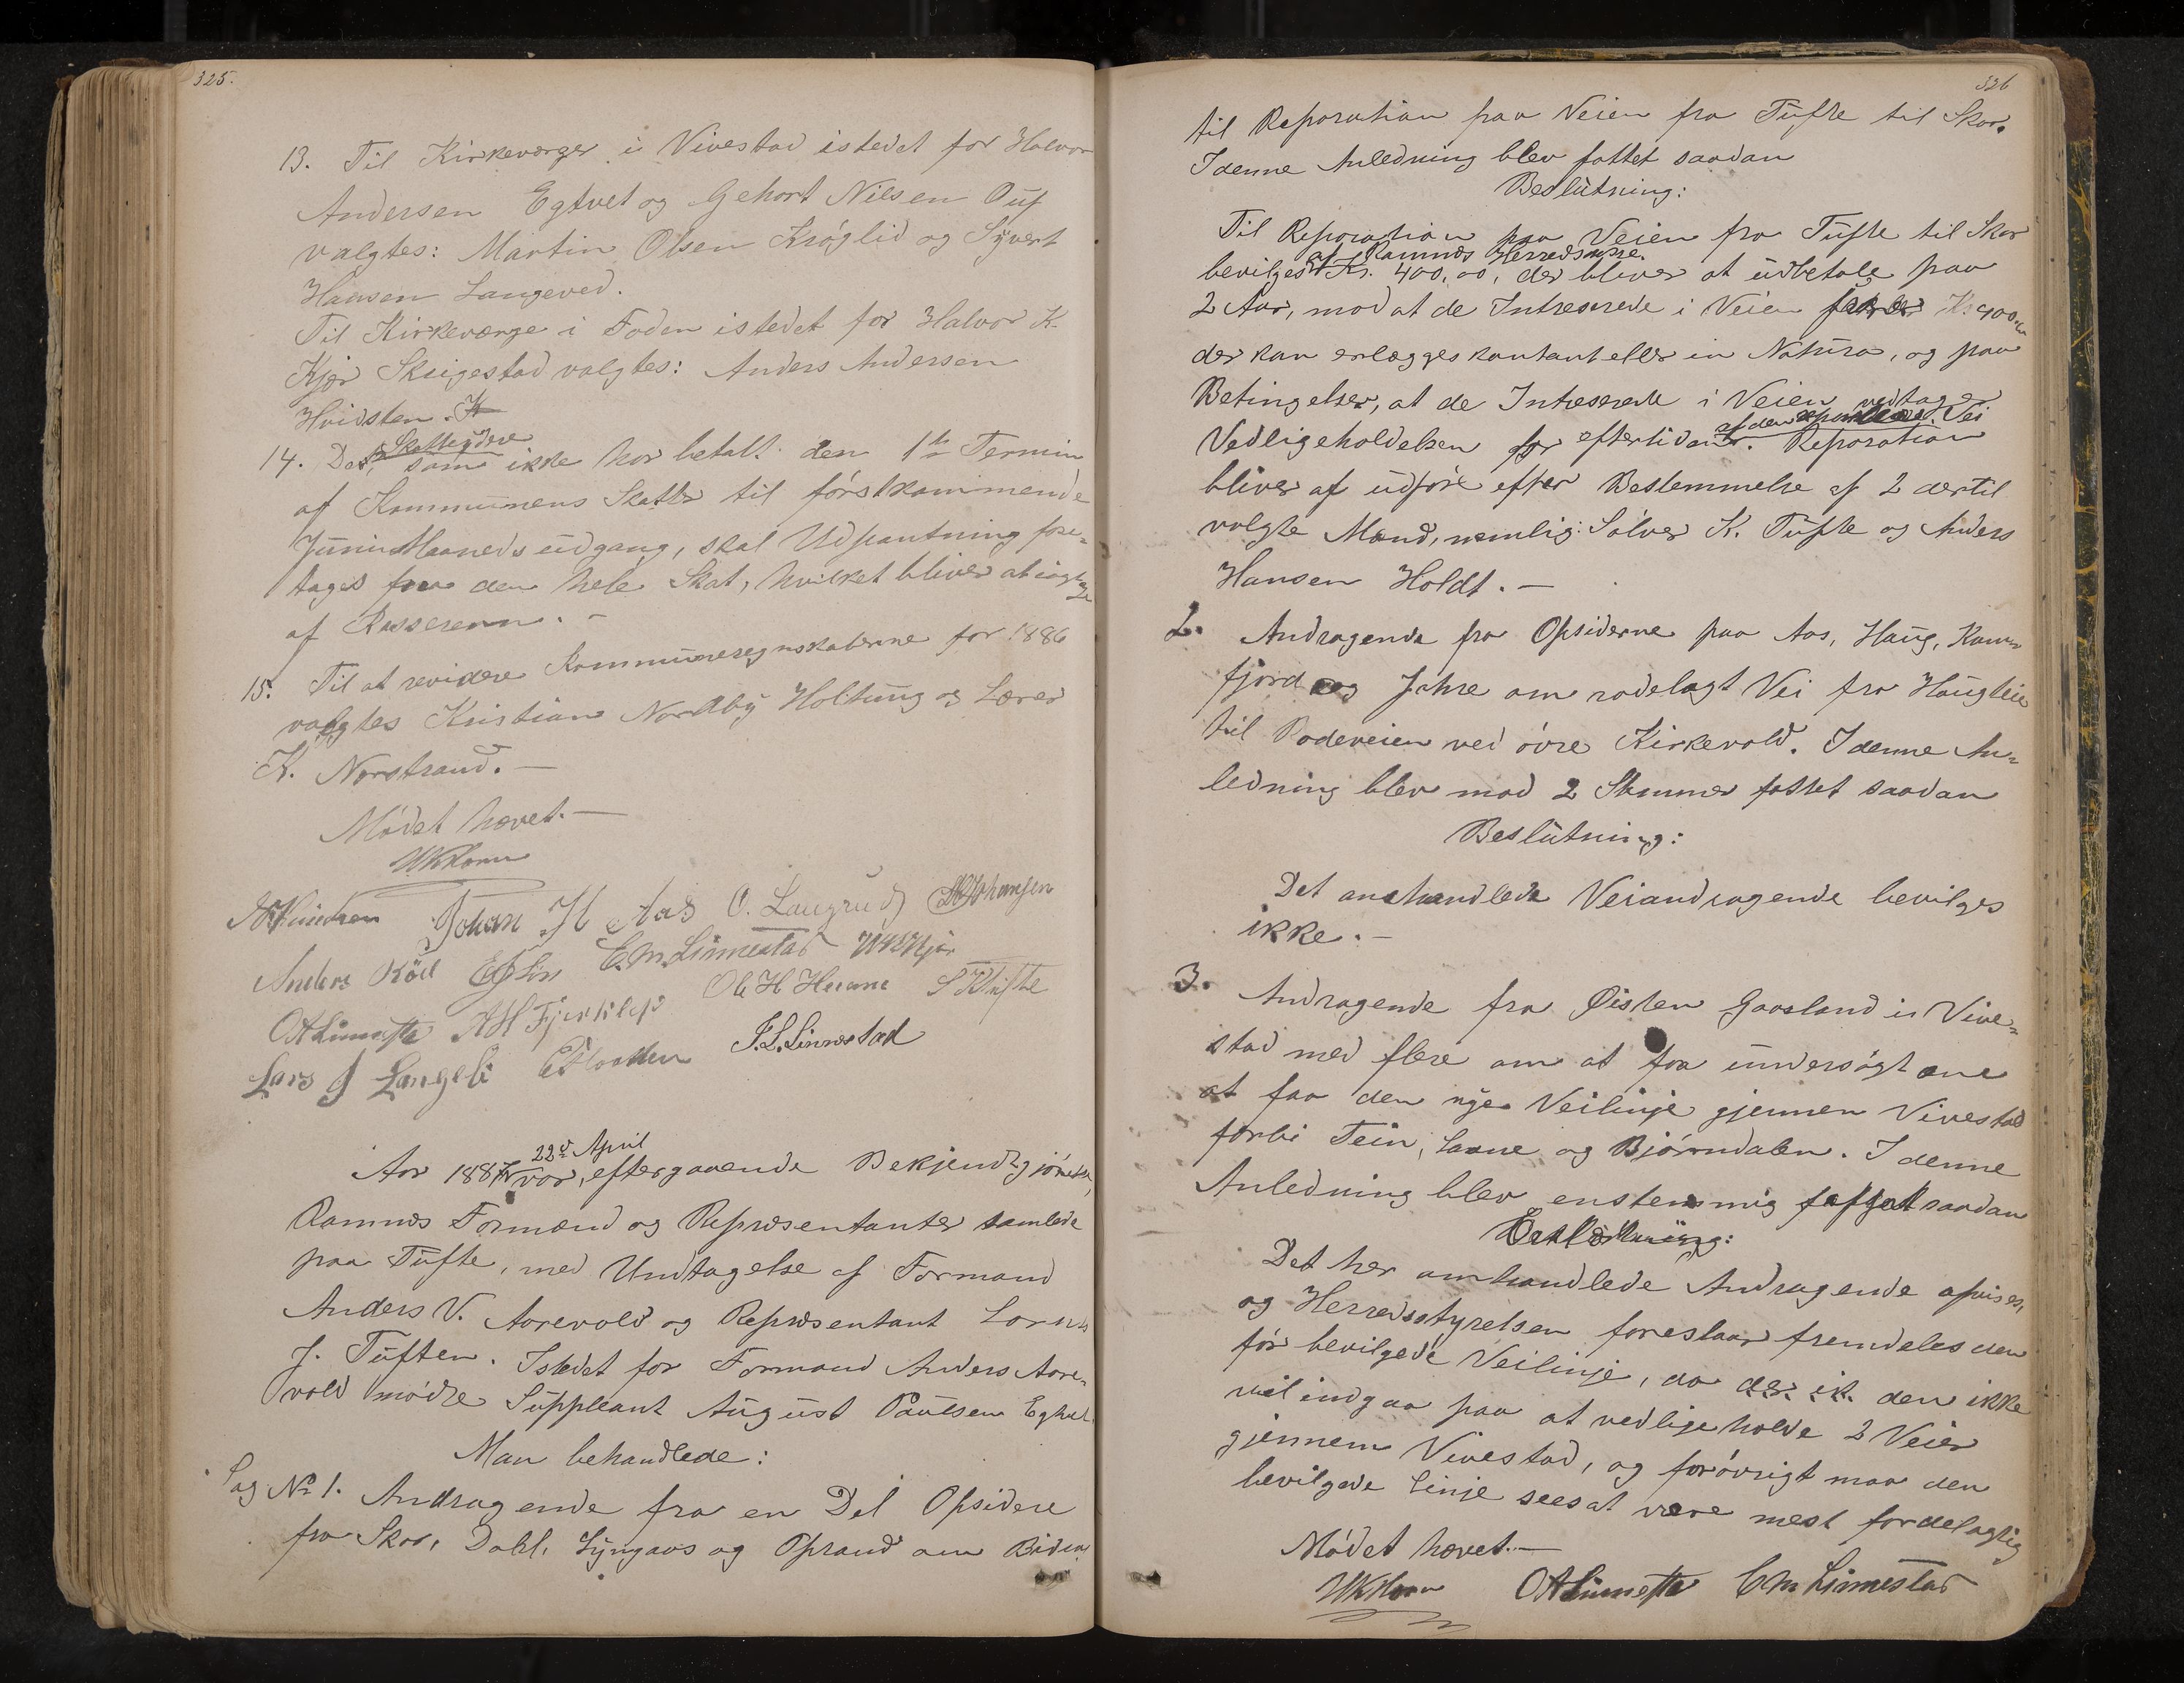 325.
13. Til Kirkeværger i Vivestad istedet for Halvor
Andersen Egtvet og Gehort Nilsen
valgtes: Martin Olsen Kröglid og Syvert
Hansen Langeved.
Til Kirkeværge i Foden istedet for Halvor K.
Kjær Skeigestad valgtes: Anders Andersen
Hvidsten.
14. De Skatteydere, som ikke har betalt den 1ste Termin
af Kommunens Skatter til förstkommende
Juni Maaneds udgang, skal Udpantning fore-
tages for den hele Skat, hvilket bliver at iagttage
af Kassereren. –
15. Til at revidere Kommuneregnskaberne for 1886
valgtes Kristian Nordby Holtung og Lærer
K. Norstrand. –
Mödet hævet. –
Johan H Aas O. Langrud Johansen
Anders C. M. Linnestad
Ole H
Lars J Langeli J. L. Linnestad
Aar 1887 22de April var, eftergaaende Bekjendtgjörelse,
Ramnes Formænd og Repræsentanter samlede
paa Tufte, med Undtagelse af Formand
Anders V. Aarevold og Repræsentant Lorns
J. Tuften. Istedet for Formand Anders Aare-
vold mödte Suppleant August Paulsen Egtvet.
Man behandlede:
Sag No 1. Andragende fra en Del Opsidere
fra Skor, Dahl, Lyngaas og Oprand om Bidrag
326
til Reparation paa Veien fra Tufte til Skor.
I denne Anledning blev fattet saadan
Beslutning:
Til Reparation paa Veien fra Tufte til Skor
bevilges af Ramnes Herredskasse Kr. 400,00, der bliver at udbetale paa
2 Aar, mod at de Intreserede i Veien Kr 400
der kan erlægges kontant eller in Natura, og paa
Betingelse, at de Intreserede i Veien vedtager
Vedligeholdelsen for eftertiden af den reparerede Vei. Reparation
bliver af udføre efter Bestemmelse af 2 dertil
valgte Mænd, nemlig: Sölver K. Tufte og Anders
Hansen Holdt. –
2. Andragende fra Opsiderne paa Aas, Haug, Kam-
fjord og Jahre om rodelagt Vei fra Haugleie
til Rodeveien ved övre Kirkevold. I denne An-
ledning blev mod 2 Stemmer fattet saadan
Beslutning:
Det omhandlede Veiandragende bevilges
ikke. –
3. Andragende fra Øisten Gaasland i Vive-
stad med flere om at faa undersögt om
at faa den nye Veilinje gjennem Vivestad
forbi Tein, Saane og Bjørndalen. I denne
Anledning blev enstemmig fattet saadan
Beslutning:
Det her omhandlede Andragende afvises,
og Herredsstyrelsen foreslaar fremdeles den
för bevilgede Veilinje, da den ikke
vil indgaa paa at vedligeholde 2 Veier
gjennem Vivestad, og forövrigt maa den
bevilgede Linje sees at være mest fordelagtig
Mödet hævet. –
C M Linnestad